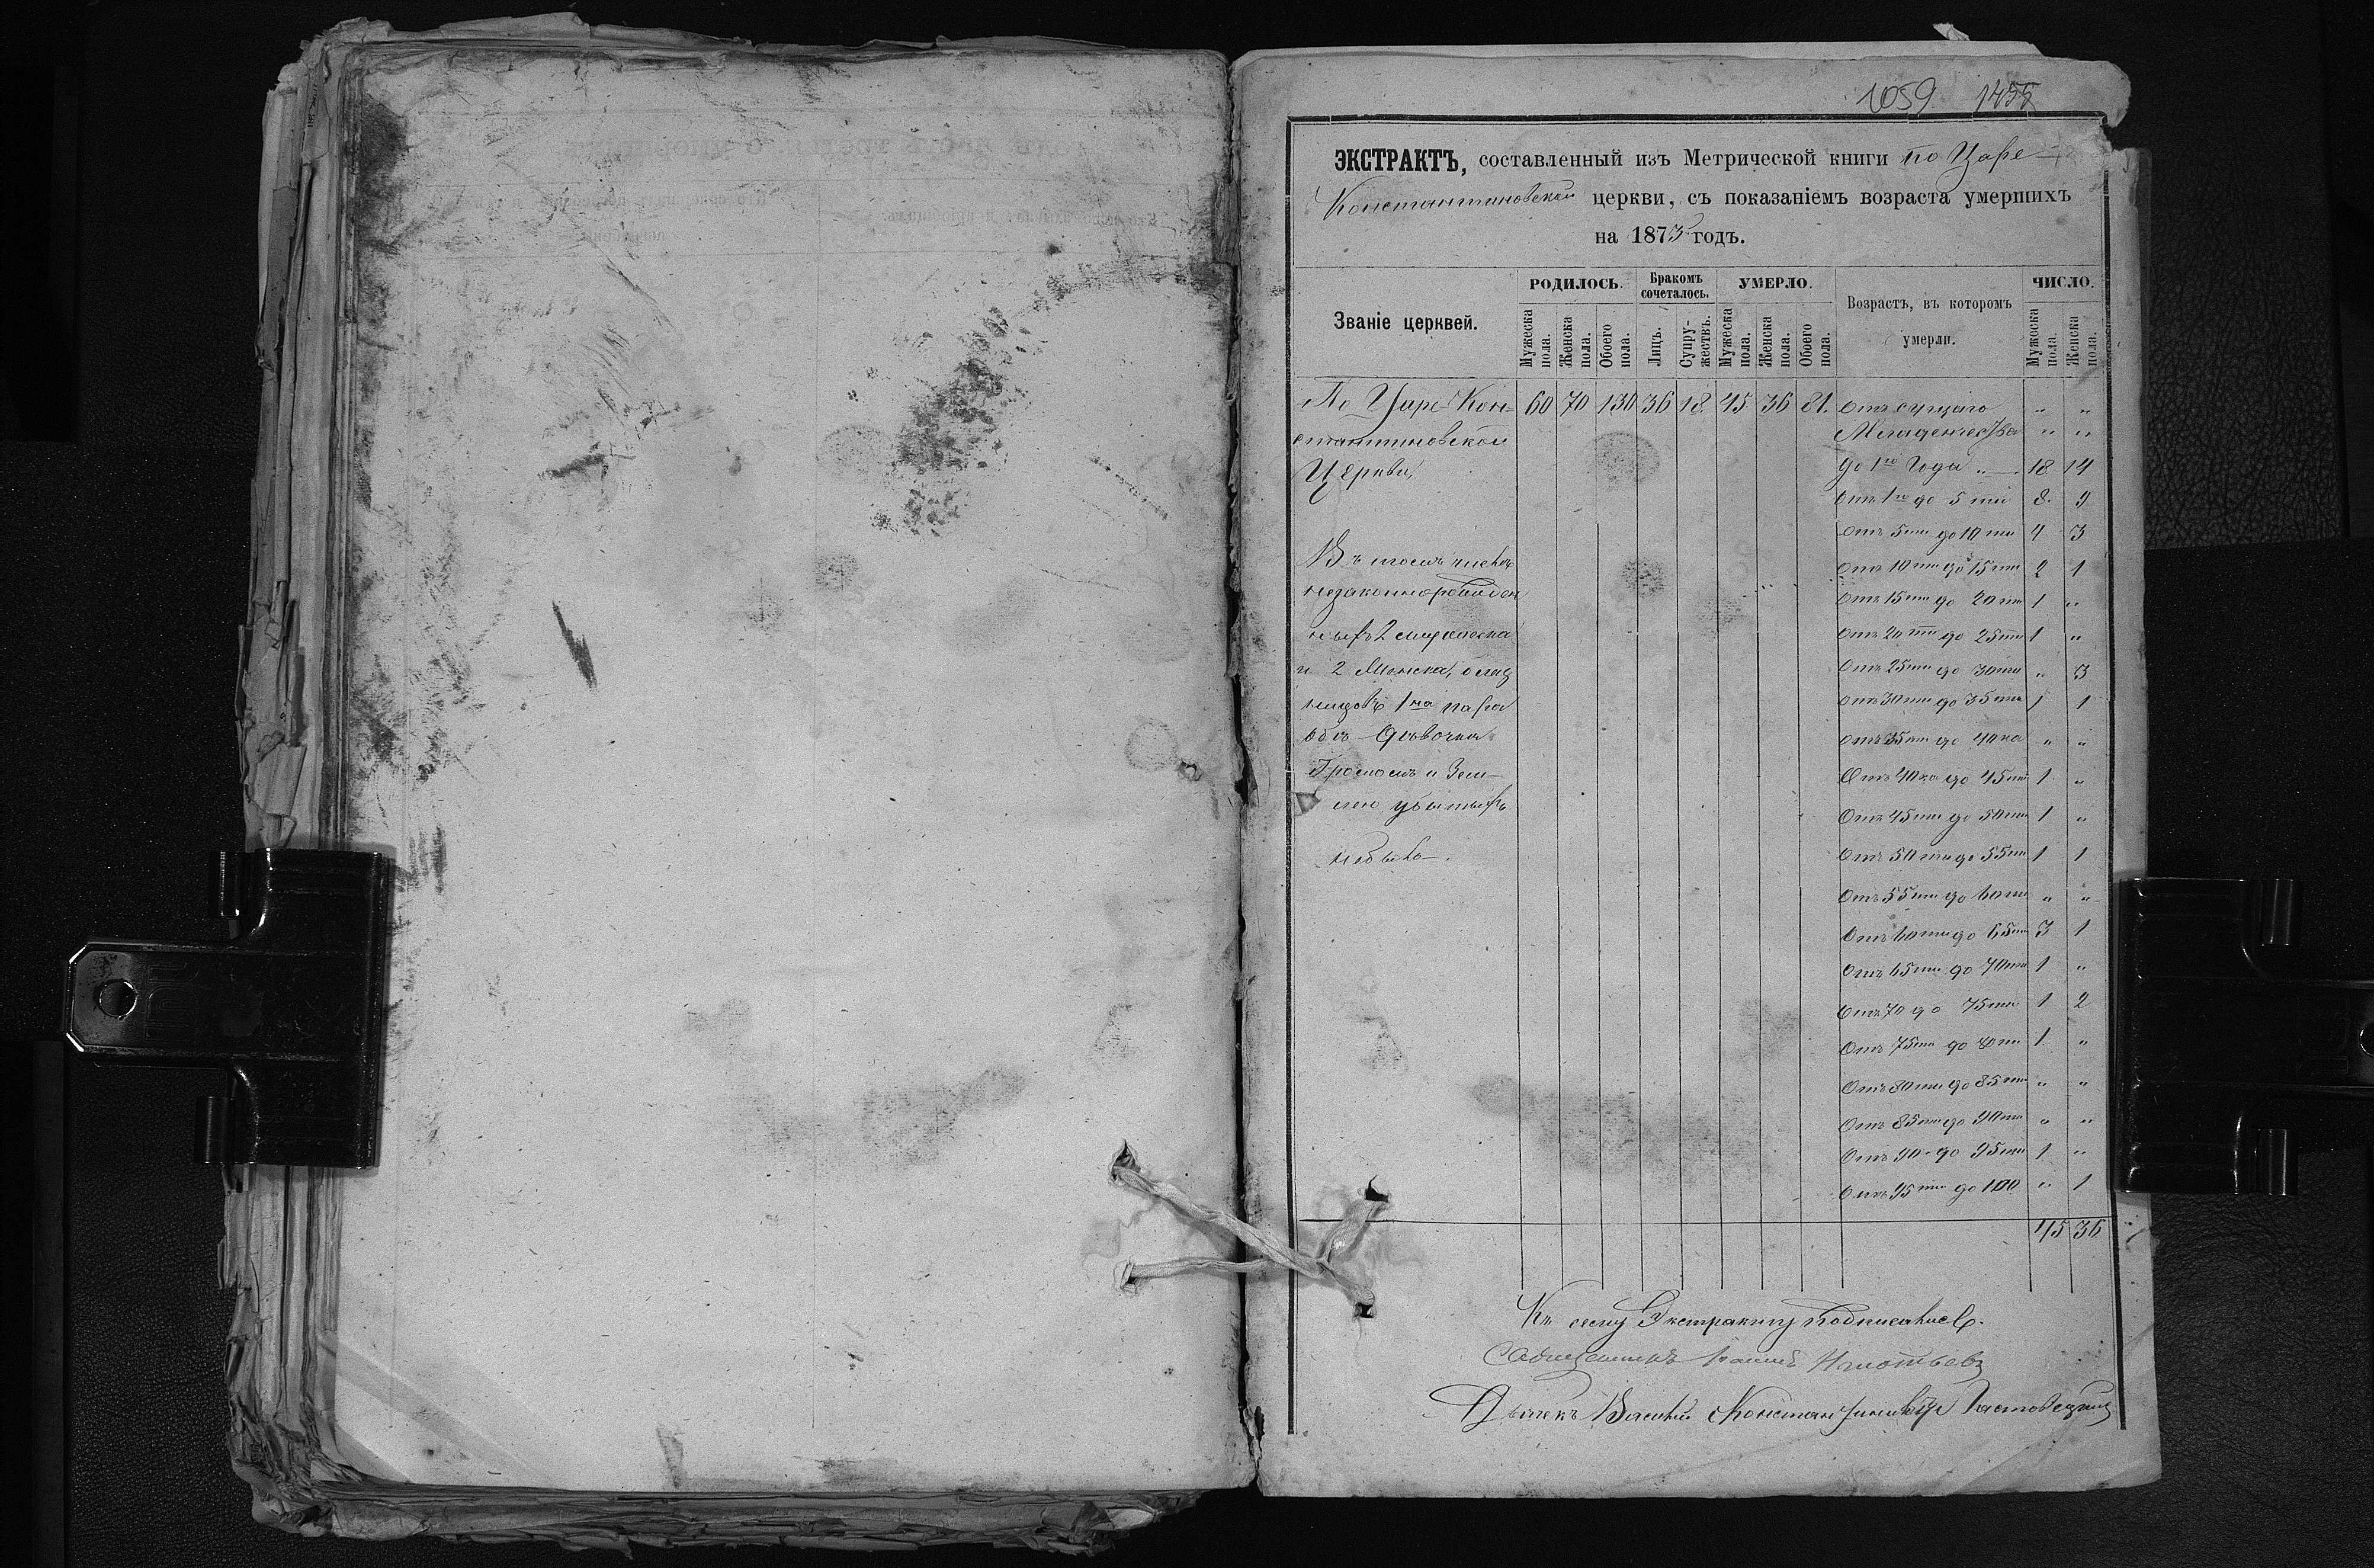 1059 1455
ЭКСТРАКТЪ, составленный изъ Метрической книги по Царе-
Константиновской церкви, съ показаніемъ возраста умершихъ
на 1873 годъ.
Званіе церквей.
РОДИЛОСЬ.
Бракомъ сочеталось.
УМЕРЛО.
Возрастъ, въ которомъ умерли.
ЧИСЛО.
Мужеска пола.
Женска пола.
Обоего пола.
Лицъ.
Супружествъ.
Мужеска пола.
Женска пола.
Обоего пола.
Мужеска пола.
Женска пола.
По Царе-Кон- 60 70 130 36 18. 45 36 81. Отъ сущаго „ „
стантиновской Младенчества „ „
Церкви, до 1го Года „ 18 14
Отъ 1го до 5ти 8. 9
Отъ 5ти до 10ти 4 3
Въ томъ числѣ Отъ 10ти до 15ти 2 1
незаконнорожден Отъ 15ти до 20ти 1 „
ныхъ 2 мужеска Отъ 20ти до 25ти 1 „
и 2 Женска, близ Отъ 25ти до 30ти „ 3
нецовъ 1на пара Отъ 30ти до 35ти 1 1
обѣ дѣвочки Отъ 35ти до 40ка „ „
Громомъ и Зем- Отъ 40ка до 45ти 1 „
лею убитыхъ Отъ 45ти до 50ти 1 „
небыло. Отъ 50ти до 55ти 1 1
Отъ 55ти до 60ти „ „
Отъ 60ти до 65ти 3 1
Отъ 65ти до 70ти 1 „
Отъ 70 до 75ти 1 2
Отъ 75ти до 80ти 1. „
Отъ 80ти до 85ти „ „
Отъ 85ти до 90ти „ „
Отъ 90 до 95ти 1 „
Отъ 95ти до 100 „ 1
45 36
Къ сему Экстракту подписались.
Священникъ Игнатьевъ
Дьячекъ Василій Константиновъ